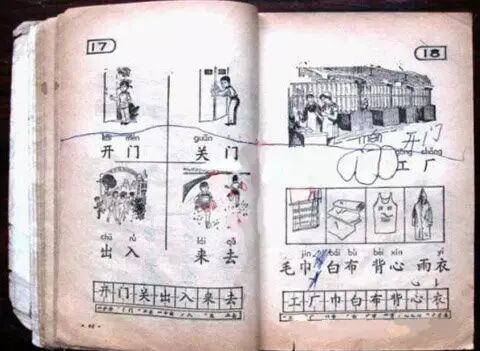 17
kāi mén guān
开门 关门
chū rù lái qù
出入 来去
开门关出入来去
18
开门
gōng chǎng
工厂
jīn bái bù bèi xīn yī
毛巾 白布 背心 雨衣
工厂巾白布背心衣